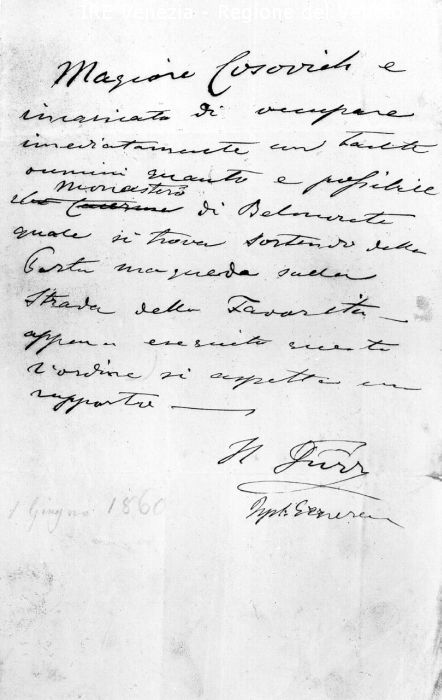 IRE Venezia - Regione del Veneto
Magiore Cosovich e
incaricato di occupare
imediatamente con tanti
oumini quanto e possibile
Monastero
di Belmonte
quale si trova sortendo della
Porta maqueda sulla
Strada della Favorita —
appena eseguito questo
l'ordine si aspetta un
rapporto —
Türr
1 Giugno 1860